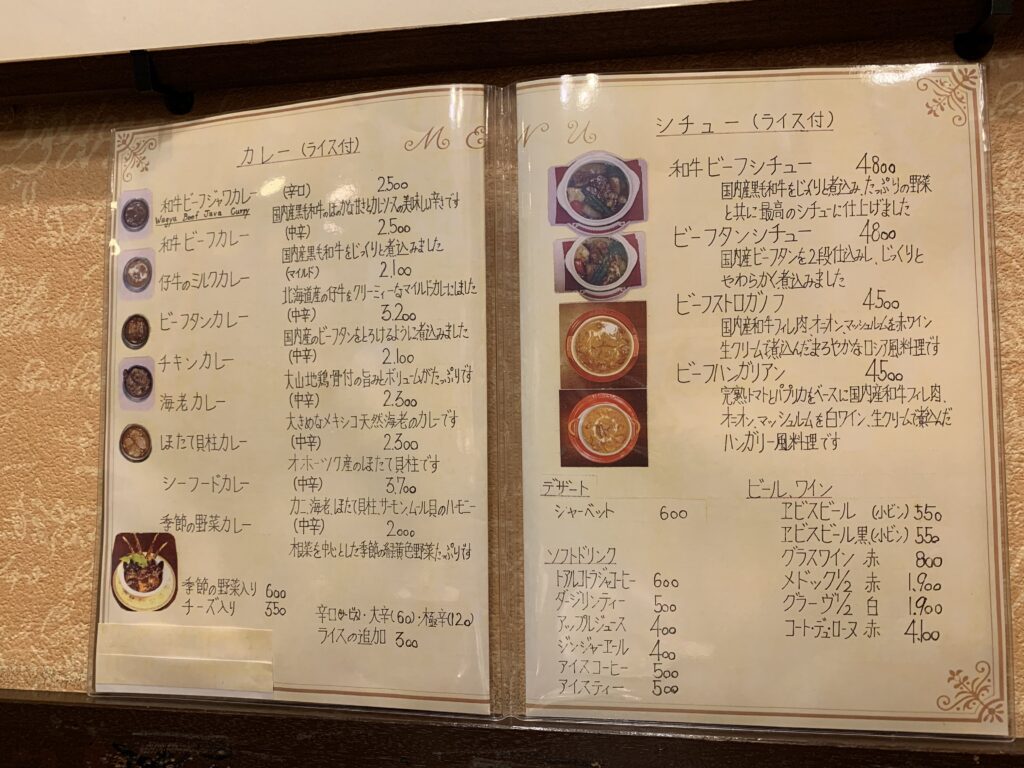 MENU
カレー(ライス付)
和牛ビーフジャワカレー (辛口) 2.500
Wagyu Beef Java Curry
国内産黒毛和牛のほのかな甘さとカレソースの美味しい辛さです
和牛ビーフカレー (中辛) 2.500
国内産黒毛和牛をじっくりと煮込みました
仔牛のミルクカレー (マイルド) 2.100
北海道産の仔牛をクリーミィーなマイルドカレーにしました
ビーフタンカレー (中辛) 3.200
国内産のビーフタンをとろけるように煮込みました
チキンカレー (中辛) 2.100
大山地鶏、骨付の旨みとボリュームがたっぷりです
海老カレー (中辛) 2.300
大きめなメキシコ天然海老のカレーです
ほたて貝柱カレー (中辛) 2.300
オホーツク産のほたて貝柱です
シーフードカレー (中辛) 3.700
カニ、海老、ほたて貝柱、サーモン、ムール貝のハーモニー
季節の野菜カレー (中辛) 2.000
根菜を中心とした季節の緑黄色野菜たっぷりです
季節の野菜入り 600
チーズ入り 350
大辛(60)・極辛(120)
ライスの追加 300
シチュー(ライス付)
和牛ビーフシチュー 4800
国内産黒毛和牛をじっくりと煮込み、たっぷりの野菜
と共に最高のシチューに仕上げました
ビーフタンシチュー 4800
国内産ビーフタンを2段仕込みし、じっくりと
やわらかく煮込みました
ビーフストロガノフ 4500
国内産和牛フィレ肉・オニオン、マッシュルームを赤ワイン
生クリームで煮込んだまろやかなロシア風料理です
ビーフハンガリアン 4500
完熟トマトとパプリカをベースに国内産和牛フィレ肉、
オニオン、マッシュルームを白ワイン、生クリームで煮込んだ
ハンガリー風料理です
デザート
シャーベット 600
ソフトドリンク
トアルコトラジャコーヒー 600
ダージリンティー 500
アップルジュース 400
ジンジャーエール 400
アイスコーヒー 500
アイスティー 500
ビール、ワイン
ヱビスビール (小ビン) 550
ヱビスビール黒(小ビン) 550
グラスワイン 赤 800
メドック1/2 赤 1.900
グラーヴ1/2 白 1.900
コート・デュ・ローヌ 赤 4.100